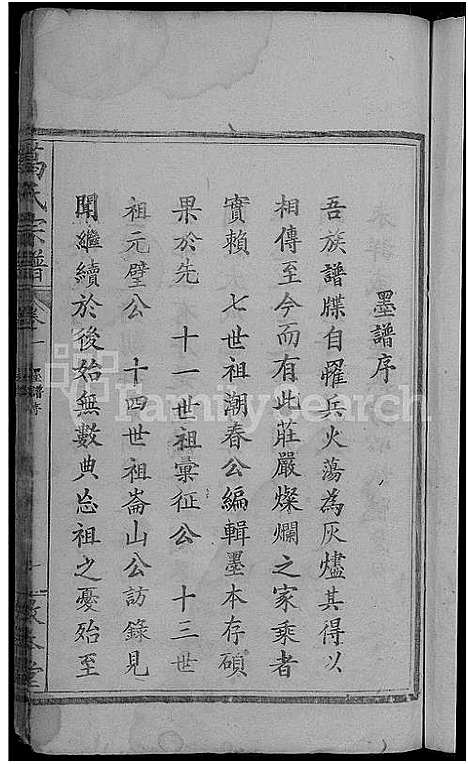 墨譜序
吾族譜牒自罹兵火蕩為灰燼其得以
相傳至今而有此莊嚴燦爛之家乘者
實賴 七世祖潮春公編輯墨本存碩
果於先 十一世祖彙征公 十三世
祖元璧公 十四世祖崙山公訪錄見
聞繼續於後始無數典忘祖之憂殆至
葛氏宗譜
卷一
墨譜序
FamilySearch